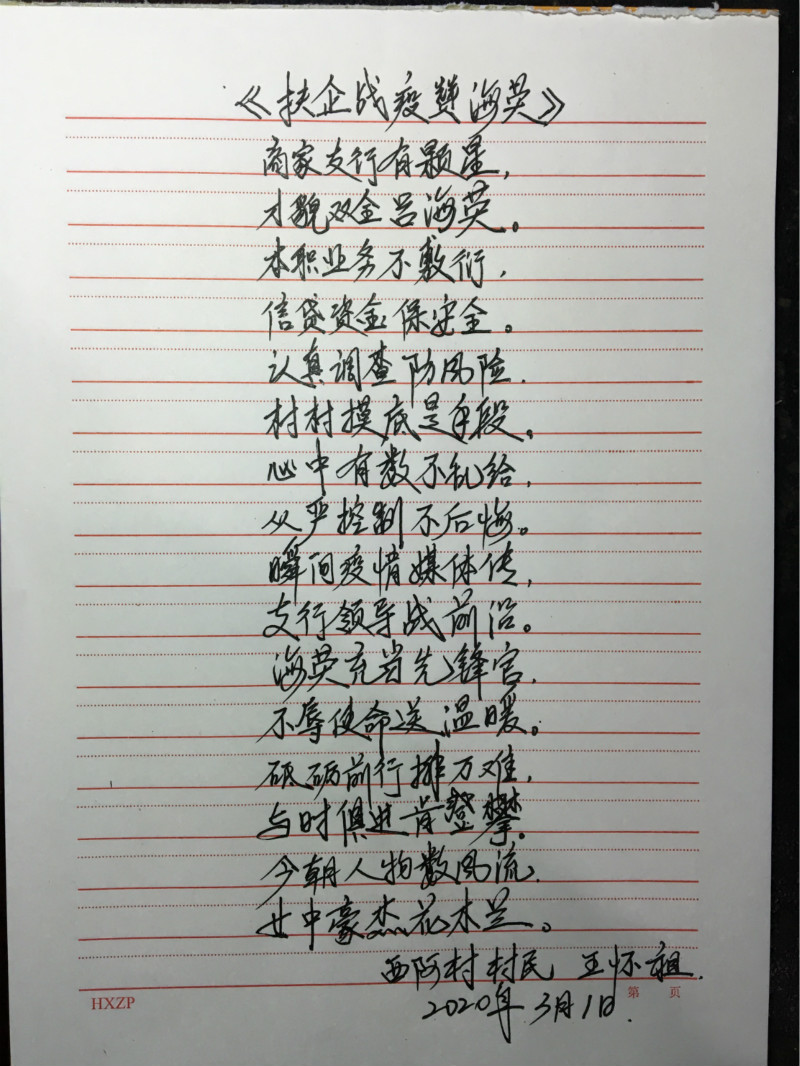 《扶企战疫赞海英》
商家支行有颗星，
才貌双全吕海英。
本职业务不敷衍，
信贷资金保安全。
认真调查防风险，
村村摸底是手段。
心中有数不乱给，
从严控制不后悔。
瞬间疫情媒体传，
支行领导战前沿。
海英充当先锋官，
不辱使命送温暖。
砥砺前行排万难，
与时俱进肯登攀。
今朝人物数风流，
女中豪杰花木兰。
西阿村村民 王怀祖.
HXZP 第 页
2020年3月1日.